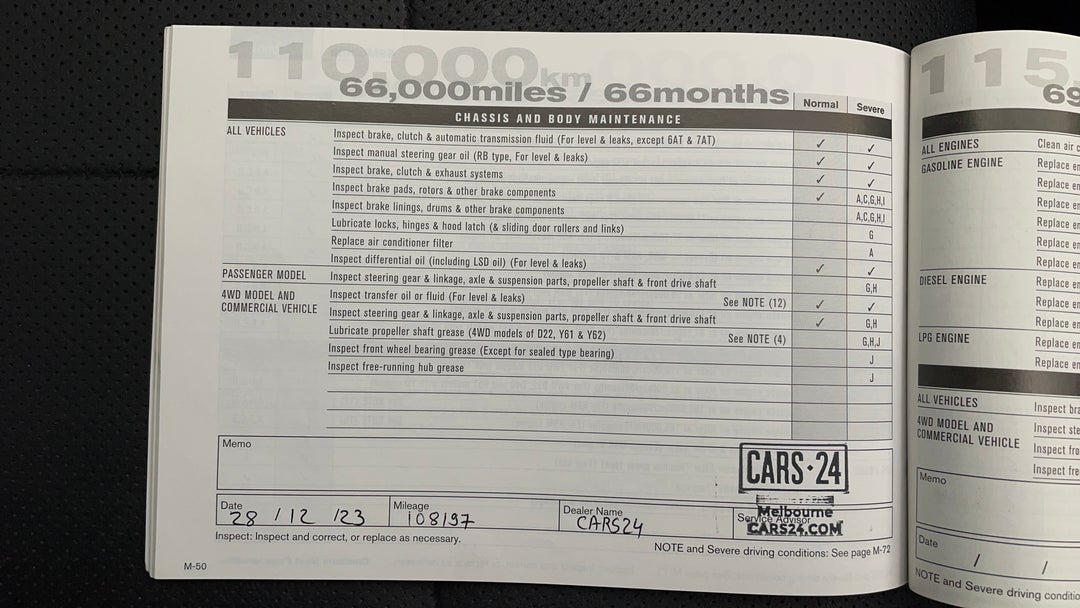 110,000km
66,000miles / 66months
Normal Severe
CHASSIS AND BODY MAINTENANCE
ALL VEHICLES Inspect brake, clutch & automatic transmission fluid (For level & leaks, except 6AT & 7AT) ✓ ✓
Inspect manual steering gear oil (RB type, For level & leaks) ✓ ✓
Inspect brake, clutch & exhaust systems ✓ ✓
Inspect brake pads, rotors & other brake components ✓ A,C,G,H,I
Inspect brake linings, drums & other brake components A,C,G,H,I
Lubricate locks, hinges & hood latch (& sliding door rollers and links) G
Replace air conditioner filter A
Inspect differential oil (including LSD oil) (For level & leaks) ✓ ✓
PASSENGER MODEL Inspect steering gear & linkage, axle & suspension parts, propeller shaft & front drive shaft G,H
4WD MODEL AND COMMERCIAL VEHICLE Inspect transfer oil or fluid (For level & leaks) See NOTE (12) ✓ ✓
Inspect steering gear & linkage, axle & suspension parts, propeller shaft & front drive shaft ✓ G,H
Lubricate propeller shaft grease (4WD models of D22, Y61 & Y62) See NOTE (4) G,H,J
Inspect front wheel bearing grease (Except for sealed type bearing) J
Inspect free-running hub grease J
Memo
CARS·24
Melbourne
CARS24.COM
Date 28 / 12 / 23 Mileage 108197 Dealer Name CARS24 Service Advisor
Inspect: Inspect and correct, or replace as necessary.
NOTE and Severe driving conditions: See page M-72
M-50
115,
69
ALL ENGINES Clean air c
GASOLINE ENGINE Replace en
Replace en
Replace en
Replace en
Replace en
Replace en
DIESEL ENGINE Replace en
Replace en
Replace en
LPG ENGINE Replace en
Replace en
ALL VEHICLES Inspect bra
4WD MODEL AND COMMERCIAL VEHICLE Inspect ste
Inspect fro
Inspect fre
Memo
Date / /
NOTE and Severe driving conditio